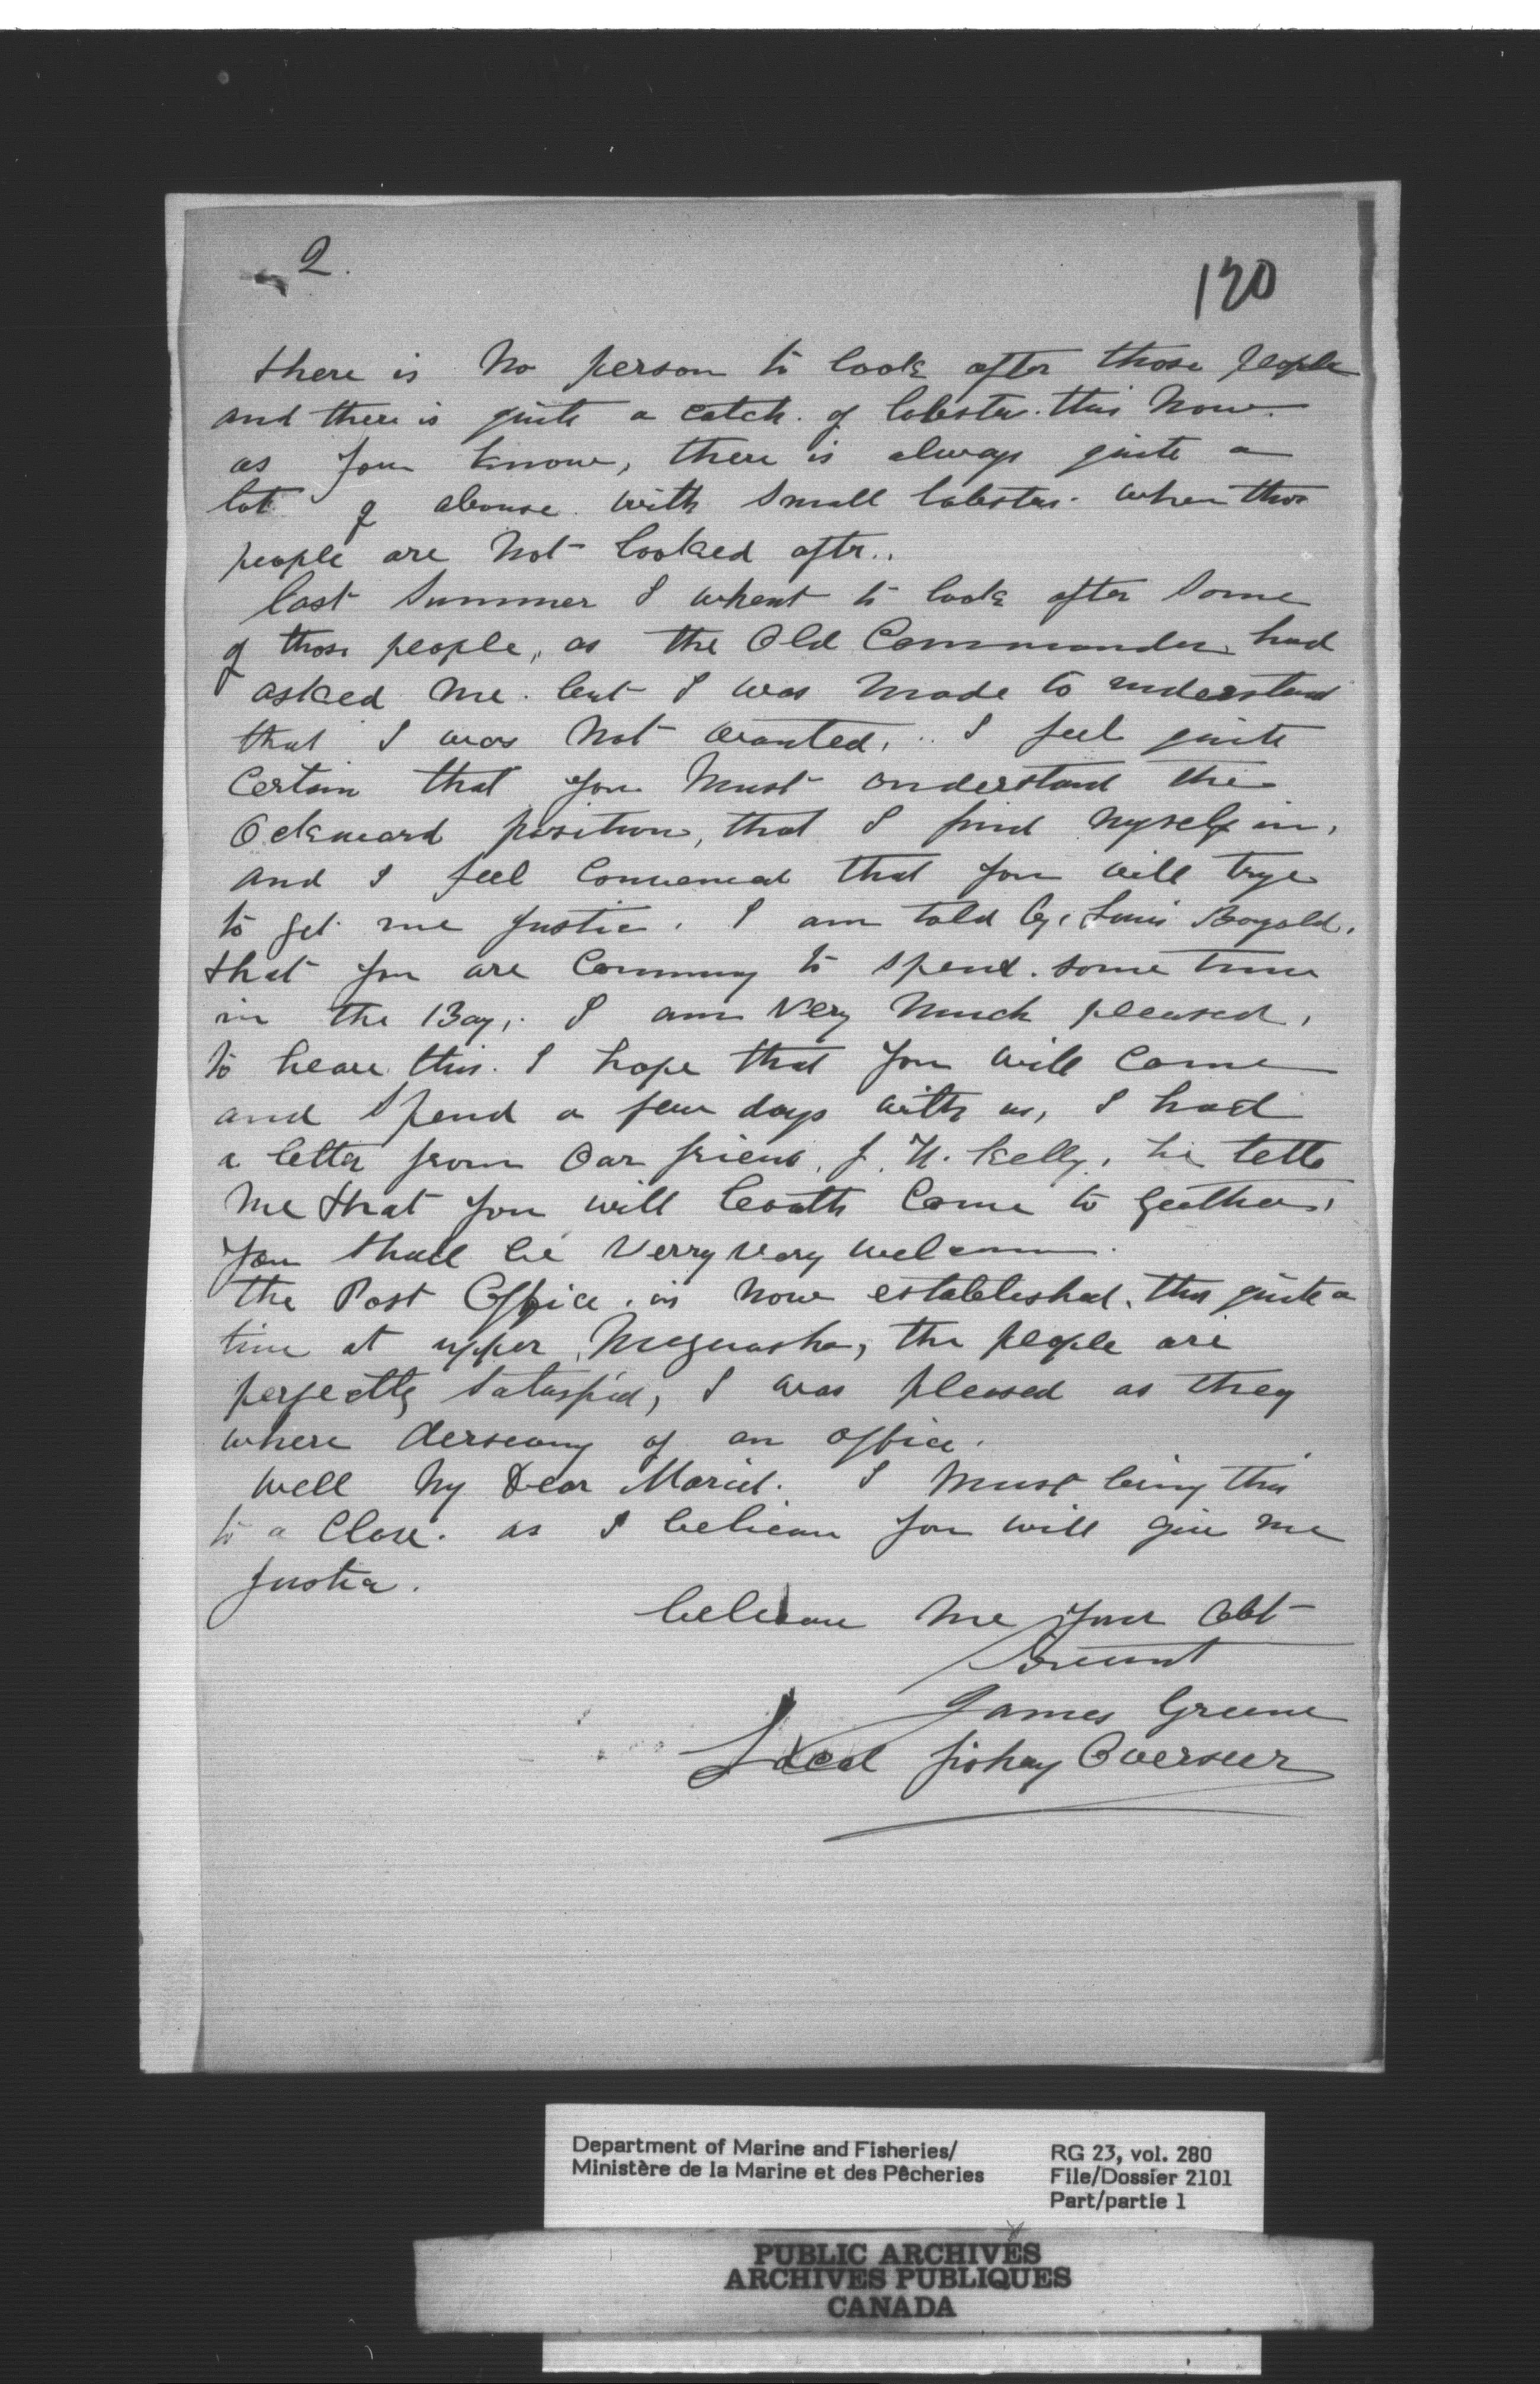 2.
120
there is No person to look after those people
and there is quite a catch. of lobster. this Now.
as you know, there is always quite a
lot of abouse with Small lobsters. when those
people are Not looked aftr..
last Summer I whent to look after Some
of those people, as the Old Commander had
asked me. but I was Made to understand
that I was Not wanted. .. I feel quite
Certain that you Must understand the
Ockward position, that I find Myself in,
and I feel Convenced that you will trye
to get me Justice. I am told by, Louis
that you are Comming to spend. some time
in the Bay,. I am Very Much pleased,
to heare this. I hope that you will Come
and Spend a few days with us, I had
a letter from Our friend, J. H. Kelly, he tells
Me that you will boath Come to Geather,
you Shall be Verry Very welcome.
the Post Office. is Now established. this quite a
time at upper Meguasha, the people are
perfectly Satisfied, I was pleased as they
where derseving of an office.
Well My Dear I Must bring this
to a Close. as I beleave you will give me
Justice.
beleave Me your Obt
Servant
James Greene
Local fishery Overseer
Department of Marine and Fisheries/
Ministère de la Marine et des Pêcheries
RG 23, vol. 280
File/Dossier 2101
Part/partie 1
PUBLIC ARCHIVES
ARCHIVES PUBLIQUES
CANADA